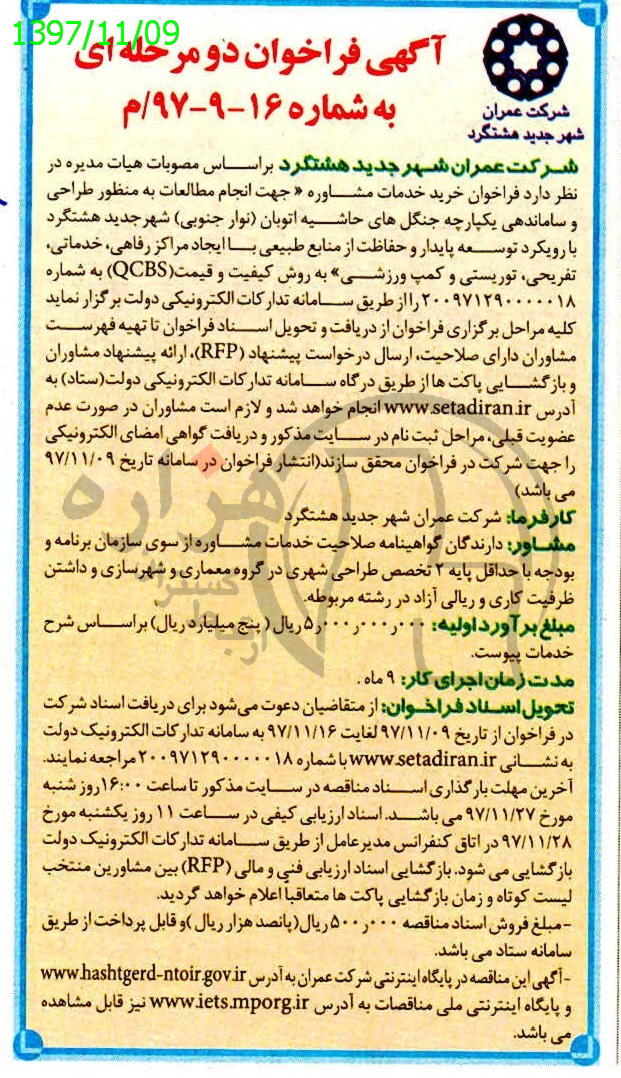 1397/11/09
آگهی فراخوان دو مرحله ای
به شماره ۱۶-۹-۹۷/م
شرکت عمران
شهر جدید هشتگرد
شرکت عمران شهر جدید هشتگرد براساس مصوبات هیات مدیره در
نظر دارد فراخوان خرید خدمات مشاوره « جهت انجام مطالعات به منظور طراحی
و ساماندهی یکپارچه جنگل های حاشیه اتوبان (نوار جنوبی) شهر جدید هشتگرد
با رویکرد توسعه پایدار و حفاظت از منابع طبیعی با ایجاد مراکز رفاهی، خدماتی،
تفریحی، توریستی و کمپ ورزشی» به روش کیفیت و قیمت(QCBS) به شماره
۲۰۰۹۷۱۲۹۰۰۰۰۰۱۸ را از طریق سامانه تدارکات الکترونیکی دولت برگزار نماید
کلیه مراحل برگزاری فراخوان از دریافت و تحویل اسناد فراخوان تا تهیه فهرست
مشاوران دارای صلاحیت، ارسال درخواست پیشنهاد (RFP)، ارائه پیشنهاد مشاوران
و بازگشایی پاکت ها از طریق درگاه سامانه تدارکات الکترونیکی دولت(ستاد) به
آدرس www.setadiran.ir انجام خواهد شد و لازم است مشاوران در صورت عدم
عضویت قبلی، مراحل ثبت نام در سایت مذکور و دریافت گواهی امضای الکترونیکی
را جهت شرکت در فراخوان محقق سازند(انتشار فراخوان در سامانه تاریخ ۹۷/۱۱/۰۹
می باشد)
کارفرما: شرکت عمران شهر جدید هشتگرد
مشاور: دارندگان گواهینامه صلاحیت خدمات مشاوره از سوی سازمان برنامه و
بودجه با حداقل پایه ۲ تخصص طراحی شهری در گروه معماری و شهرسازی و داشتن
ظرفیت کاری و ریالی آزاد در رشته مربوطه.
مبلغ برآورد اولیه: ۵٫۰۰۰٫۰۰۰٫۰۰۰ ریال ( پنج میلیارد ریال) براساس شرح
خدمات پیوست.
مدت زمان اجرای کار: ۹ ماه .
تحویل اسناد فراخوان: از متقاضیان دعوت می‌شود برای دریافت اسناد شرکت
در فراخوان از تاریخ ۹۷/۱۱/۰۹ لغایت ۹۷/۱۱/۱۶ به سامانه تدارکات الکترونیک دولت
به نشانی www.setadiran.ir با شماره ۲۰۰۹۷۱۲۹۰۰۰۰۰۱۸ مراجعه نمایند.
آخرین مهلت بارگذاری اسناد مناقصه در سایت مذکور تا ساعت ۱۶:۰۰ روز شنبه
مورخ ۹۷/۱۱/۲۷ می باشد. اسناد ارزیابی کیفی در ساعت ۱۱ روز یکشنبه مورخ
۹۷/۱۱/۲۸ در اتاق کنفرانس مدیرعامل از طریق سامانه تدارکات الکترونیک دولت
بازگشایی می شود. بازگشایی اسناد ارزیابی فنی و مالی (RFP) بین مشاورین منتخب
لیست کوتاه و زمان بازگشایی پاکت ها متعاقباً اعلام خواهد گردید.
-مبلغ فروش اسناد مناقصه ۵۰۰٫۰۰۰ ریال(پانصد هزار ریال )و قابل پرداخت از طریق
سامانه ستاد می باشد.
-آگهی این مناقصه در پایگاه اینترنتی شرکت عمران به آدرس www.hashtgerd-ntoir.gov.ir
و پایگاه اینترنتی ملی مناقصات به آدرس www.iets.mporg.ir نیز قابل مشاهده
می باشد.
هزاره